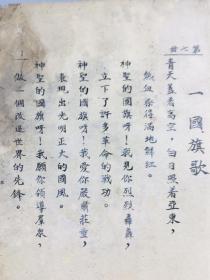 第七册
一 國旗歌
青天蓋着高空，白日照着亞東，
熱血染得滿地鮮紅。
神聖的國旗呀！我見你烈烈轟轟，
立下了許多革命的戰功。
神聖的國旗呀！我愛你嚴肅莊重，
表現出光明正大的國風。
神聖的國旗呀！我願你領導羣衆，
做一個改進世界的先鋒。